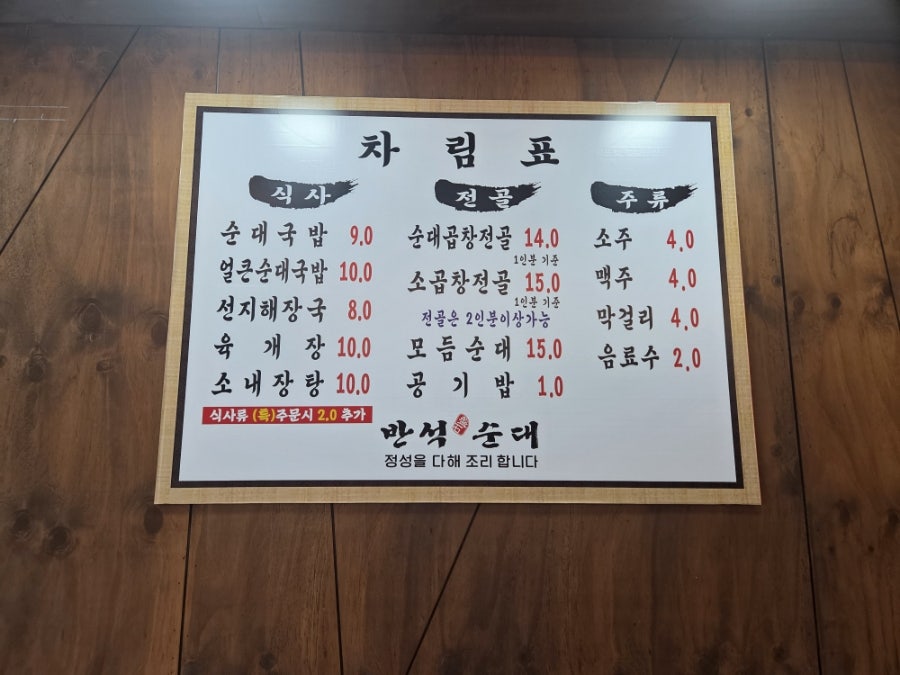 차림표
식사
순대국밥 9.0
얼큰순대국밥 10.0
선지해장국 8.0
육개장 10.0
소내장탕 10.0
식사류 (특)주문시 2.0 추가
전골
순대곱창전골 14.0
1인분 기준
소곱창전골 15.0
1인분 기준
전골은 2인분이상가능
모듬순대 15.0
공기밥 1.0
주류
소주 4.0
맥주 4.0
막걸리 4.0
음료수 2.0
반석 순대
정성을 다해 조리 합니다